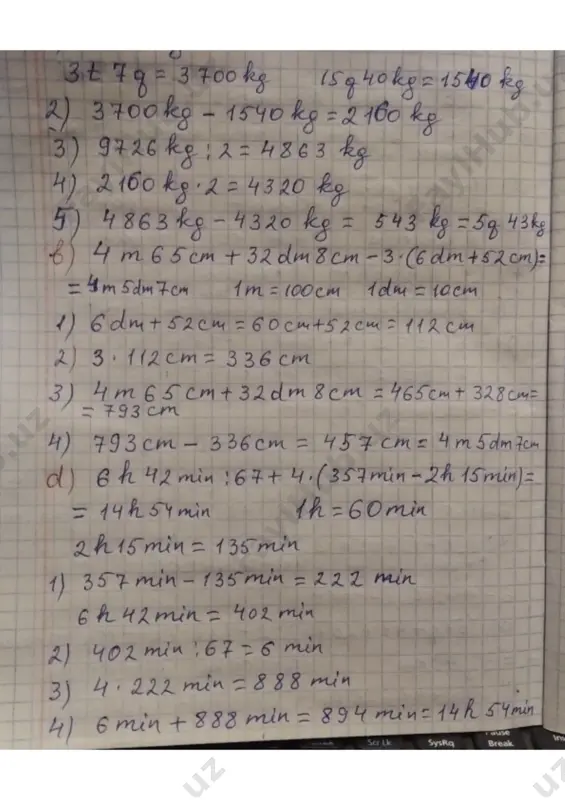 3t 7q = 3700kg 15q 40kg = 1540 kg
2) 3700kg - 1540 kg = 2160 kg
3) 9726 kg : 2 = 4863 kg
4) 2160 kg · 2 = 4320 kg
5) 4863 kg - 4320 kg = 543 kg = 5q 43kg
b) 4 m 65cm + 32dm 8cm - 3·(6dm+52cm)=
= 4m 5dm 7cm 1m = 100cm 1dm = 10cm
1) 6dm + 52cm = 60cm + 52cm = 112 cm
2) 3 · 112cm = 336cm
3) 4 m 65cm + 32dm 8cm = 465cm + 328cm=
= 793 cm
4) 793cm - 336cm = 457cm = 4m 5dm 7cm
d) 6 h 42 min : 67 + 4·(357min - 2h 15min)=
= 14h 54min 1h = 60min
2h 15min = 135min
1) 357 min - 135min = 222 min
6 h 42 min = 402 min
2) 402 min : 67 = 6 min
3) 4 · 222 min = 888 min
4) 6 min + 888 min = 894 min = 14h 54min
Scr Lk SysRq Pause Break
uz